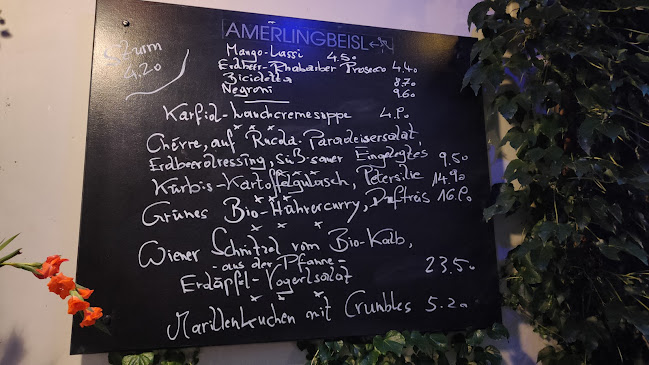 AMERLINGBEISL
Sturm
4.20
Mango-Lassi 4.50
Erdbeer-Rhabarber Prosecco 4.40
Bicicletta 8.70
Negroni 9.60
Karfiol-Lauchcremesuppe 4.90
Chèvre, auf Rucola-Paradeisersalat,
Erdbeerdressing, süß-sauer Eingelegtes 9.50
Kürbis-Kartoffelgulasch, Petersilie 14.90
Grünes Bio-Hühnercurry, Duftreis 16.90
Wiener Schnitzel vom Bio-Kalb,
-aus der Pfanne-
Erdäpfel-Vogerlsalat 23.50
Marillenkuchen mit Crumbles 5.20